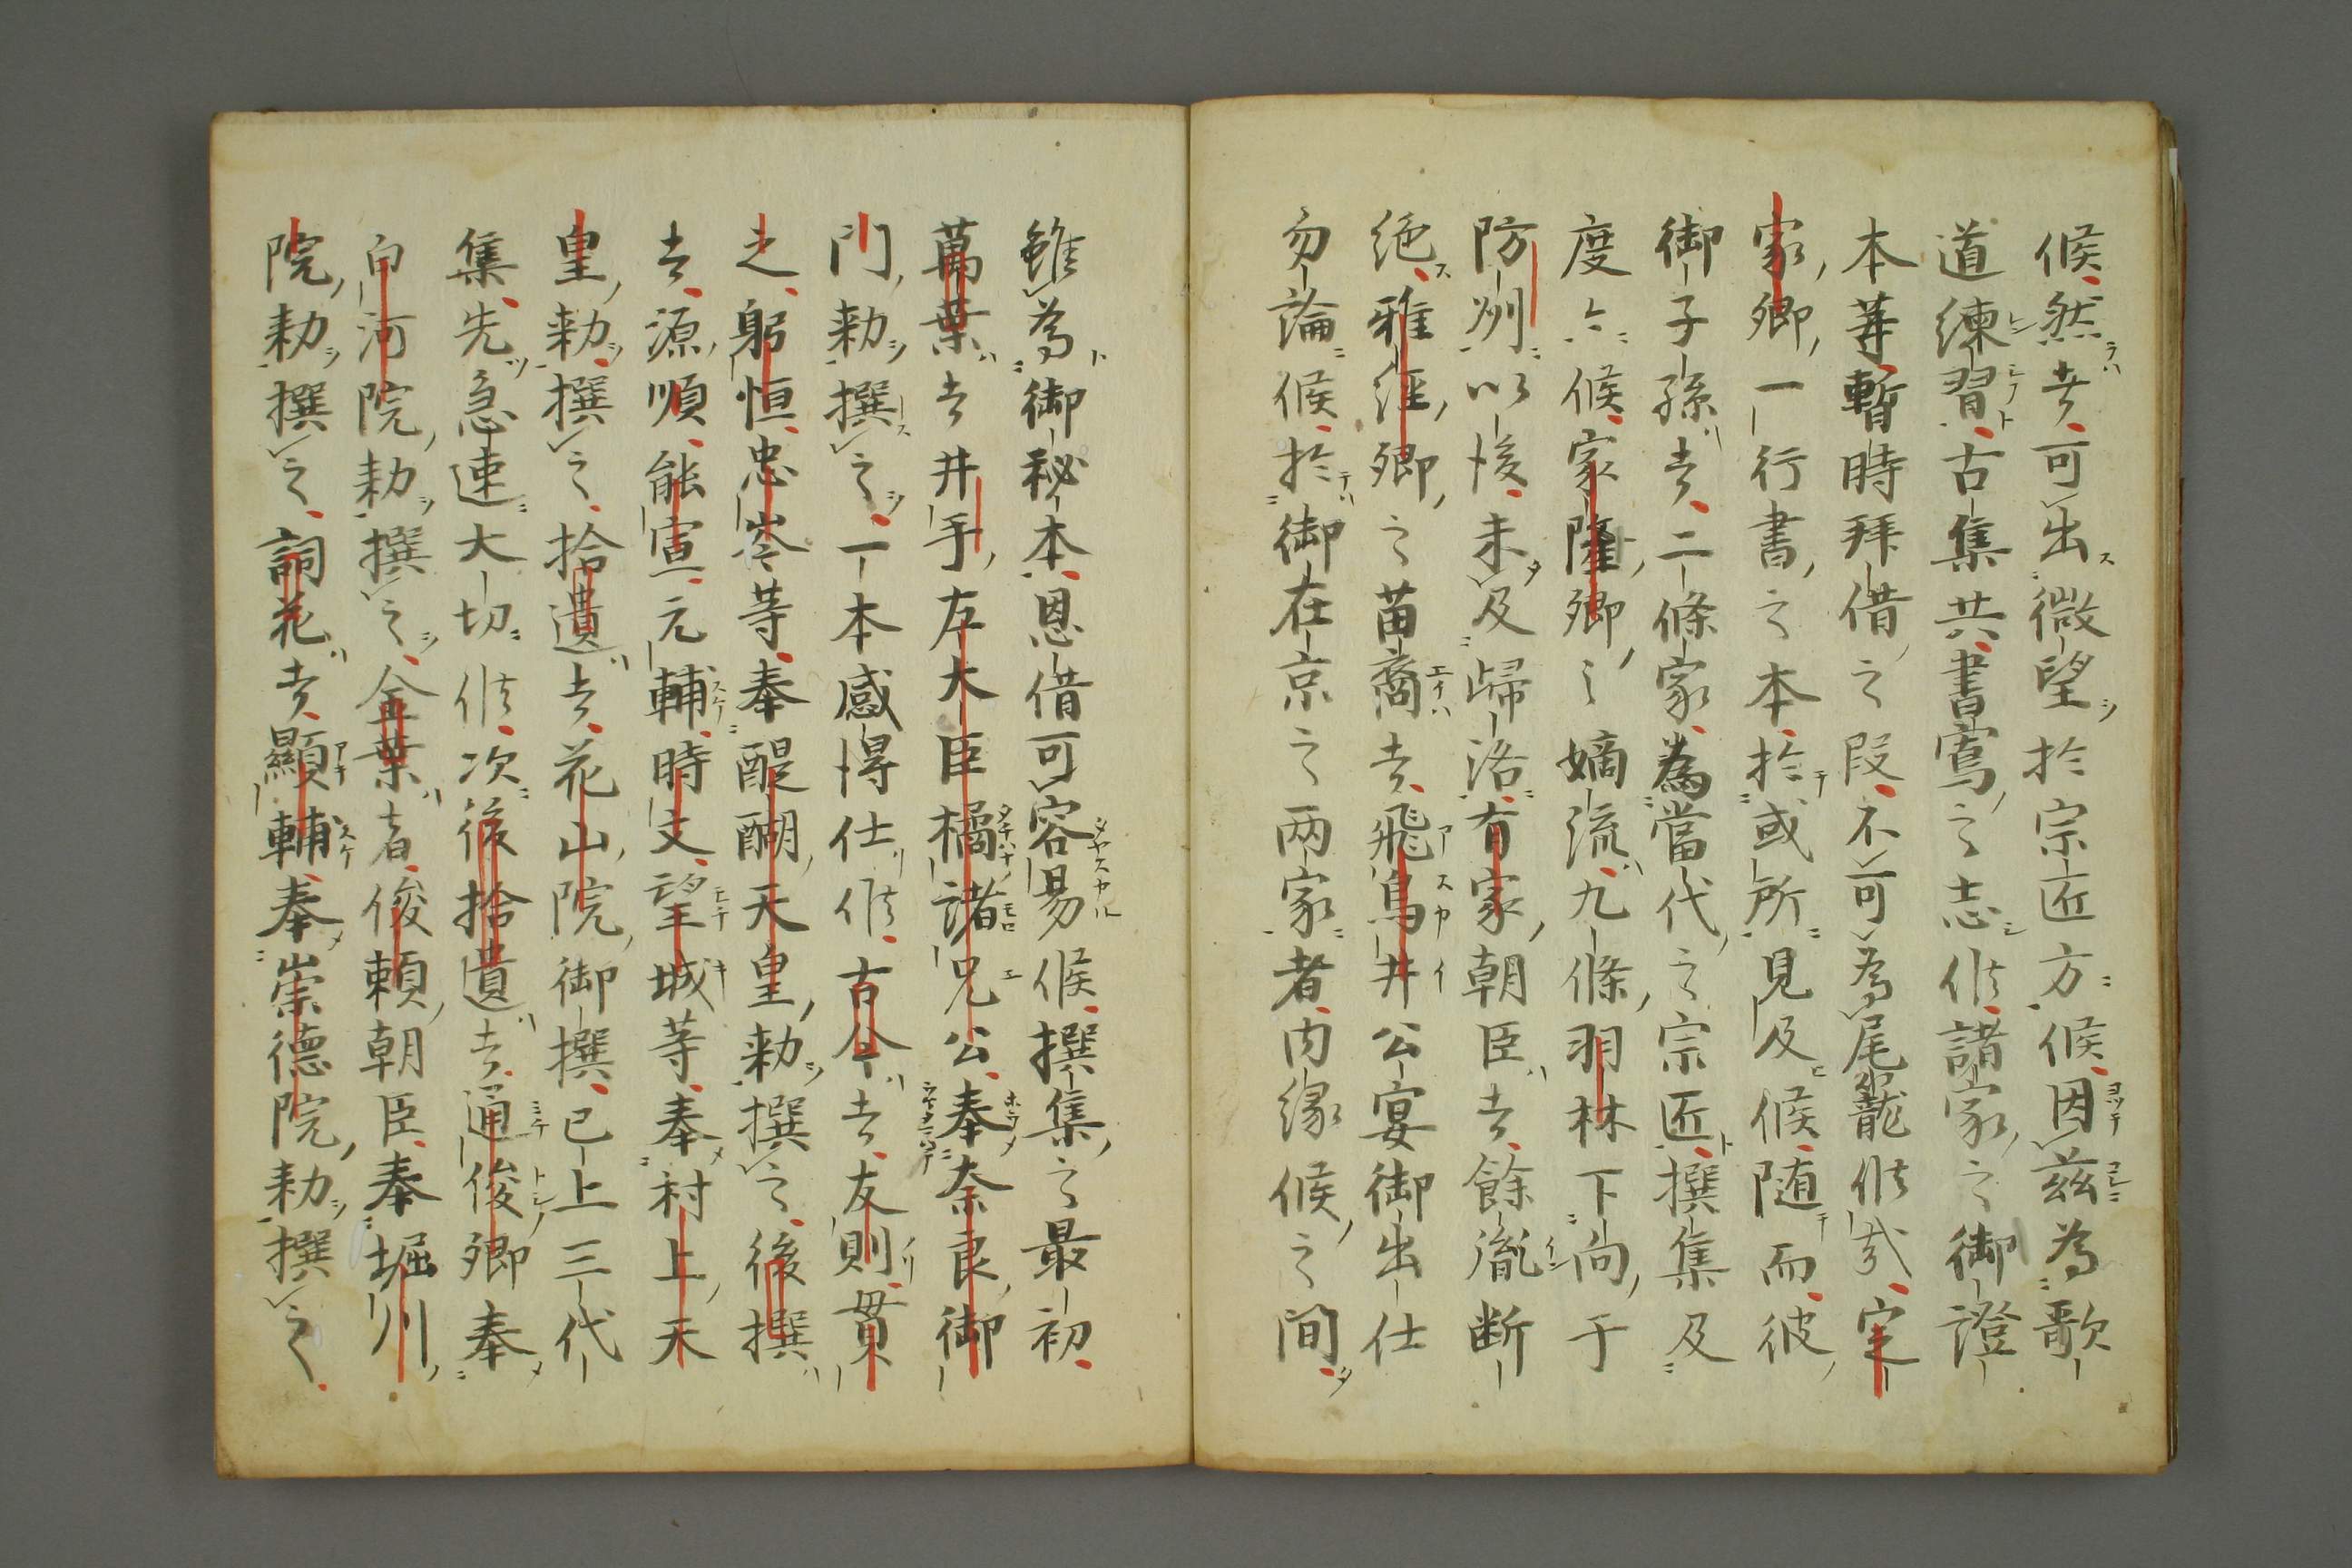 候然者可出微望於宗匠方候因茲為歌
道練習古集共書寫之志候諸家之御證
本等暫時拜借之段不可為尾籠候哉定
家卿一行書之本於或所見及候随而彼
御子孫者二條家為當代之宗匠撰集及
度々候家隆卿之嫡流九條羽林下向于
防州以後未及歸洛有家朝臣者餘胤断
絶雅経卿之苗裔者飛鳥井公宴御出仕
勿論候於御在京之両家者内縁候之間
雖為御秘本恩借可容易候撰集之最初
萬葉者井手左大臣橘諸兄公奉奈良御
門勅撰之一本感得仕候古今者友則貫
之躬恒忠岑等奉醍醐天皇勅撰之後撰
者源順能宣元輔時文望城等奉村上天
皇勅撰之拾遺者花山院御撰已上三代
集先急速大切候次後拾遺者通俊卿奉
白河院勅撰之金葉者俊頼朝臣奉堀川
院勅撰之詞花者顯輔奉崇徳院勅撰之